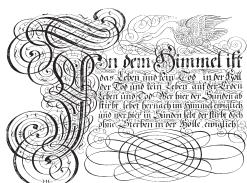 In dem Himmel ist
das Leben und kein Tod in der Höll
der Tod und kein Leben auf der Erden
Leben und Tod Wer hier der Sünden ab
stirbt lebet hernach im Himmel ewiglich
und wer hier in Sünden lebt der stirbt doch
ohne Sterben in der Hölle ewiglich